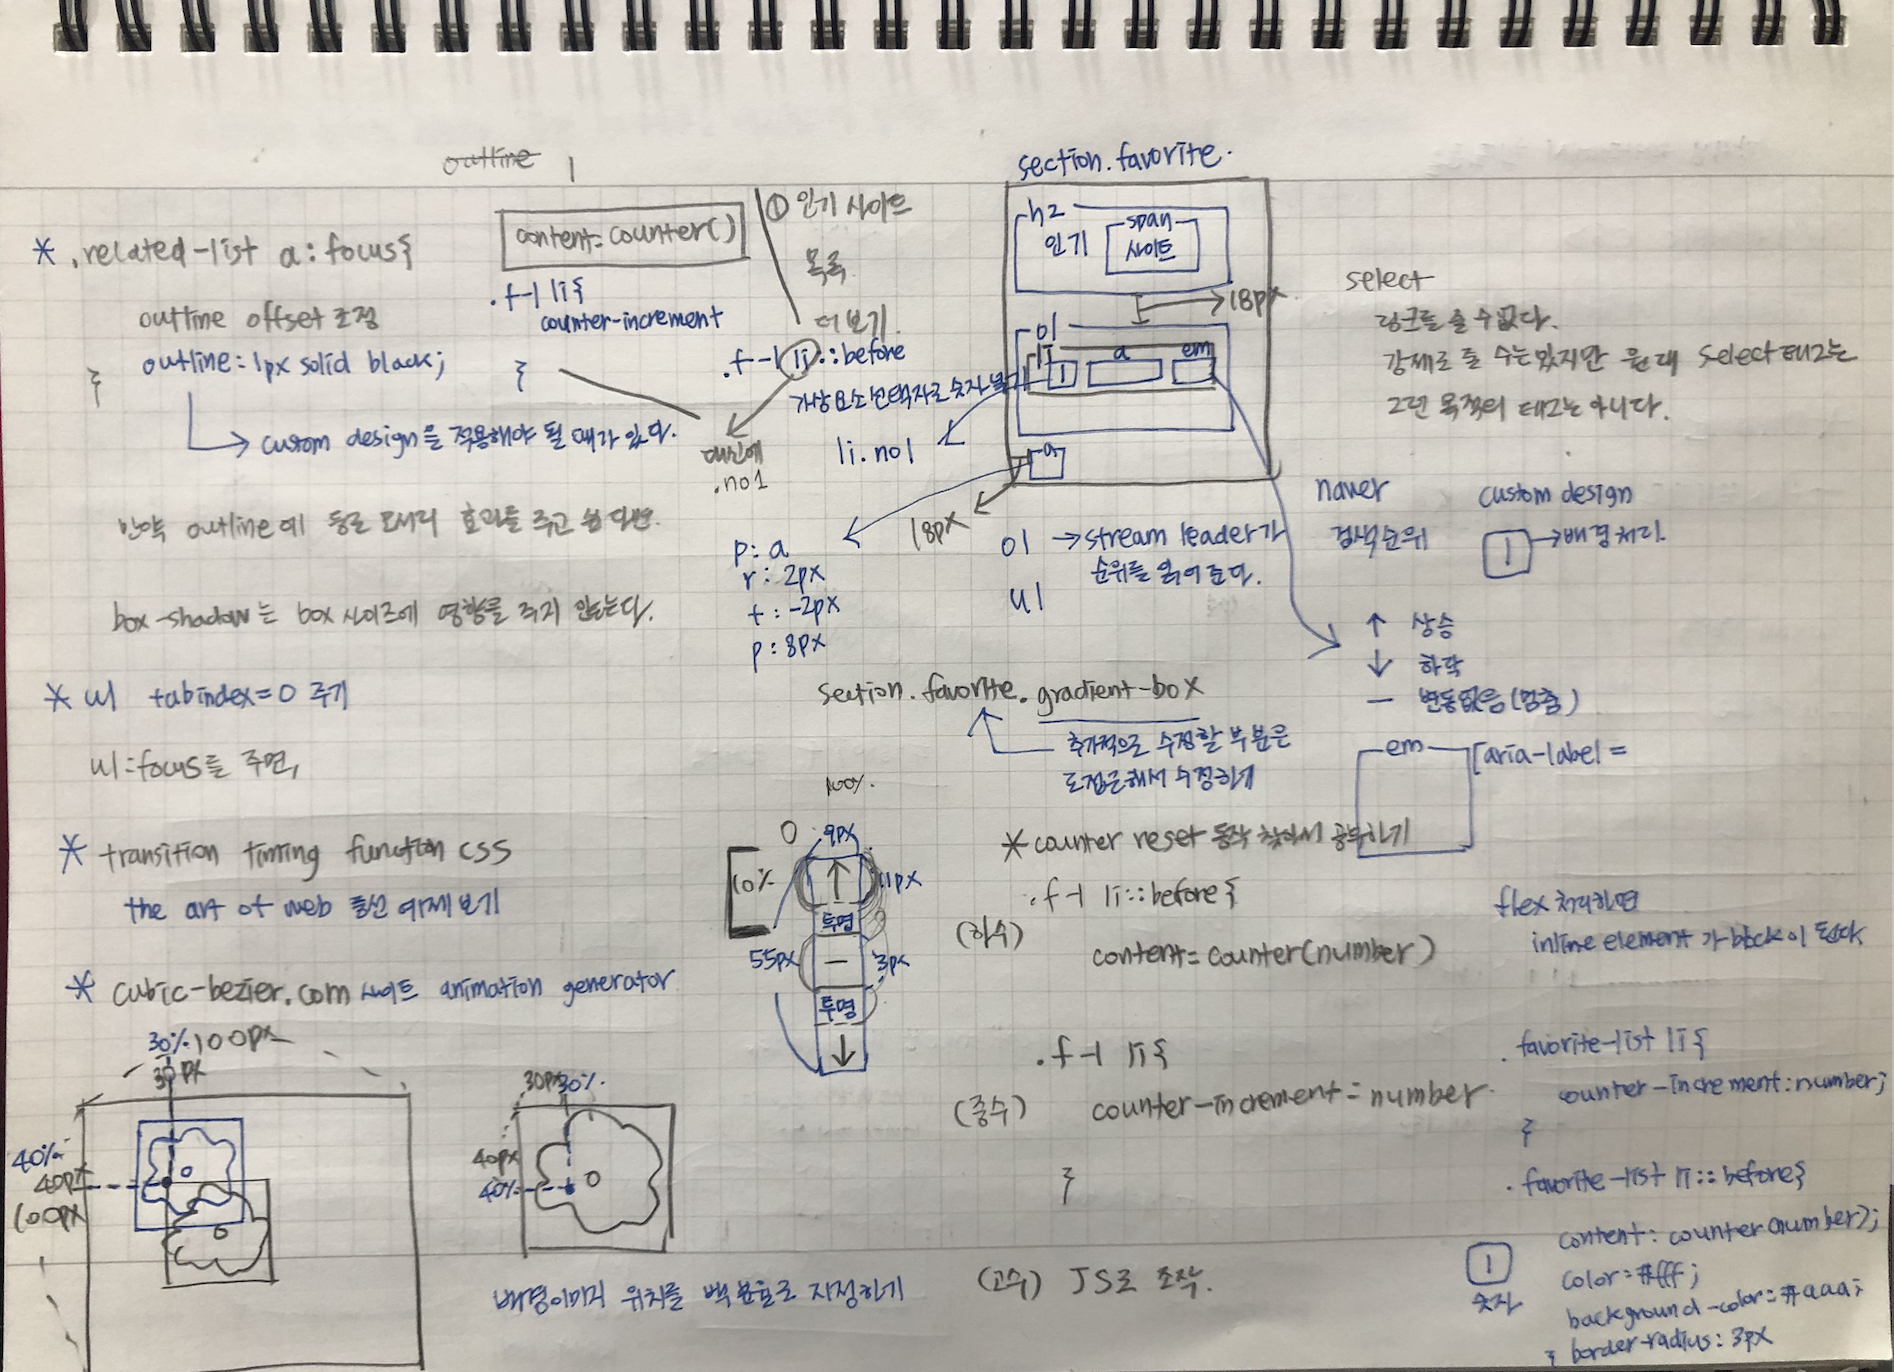 outline
* .related-list a:focus{
outline offset 조정
outline: 1px solid black;
}
custom design을 적용해야 될 때가 있다.
만약 outline에 둥근 모서리 효과를 주고 싶다면.
box-shadow는 box 사이즈에 영향을 주지 않는다.
* ul tabindex=0 주기
ul:focus를 주면,
* transition timing function css
the art of web 예제 보기
* cubic-bezier.com 사이트 animation generator
30% 100px
30px
40%
40px
100px
30px 30%
40px
40%
배경이미지 위치를 백분율로 지정하기
content: counter()
.f-l li{
counter-increment
}
① 인기 사이트
목록
더보기
.f-l li::before
가상요소 선택자로 숫자 넣기
대신에
.no1
li.no1
p: a
r: 2px
t: -2px
p: 8px
section.favorite
h2
인기
span
사이트
18px
ol
li
1
a
em
a
18px
ol → stream leader가
순위를 읽어준다.
ul
section.favorite.gradient-box
추가적으로 수정할 부분은
접근해서 수정하게
100%
0
9px
10%
↑
11px
투명
55px
—
3px
투명
↓
* counter reset 동작 찾아서 공부하기
(하수)
.f-l li::before{
content= counter(number)
(중수)
.f-l li{
counter-increment= number
}
(고수) JS로 조작.
select
링크를 쓸 수 없다.
강제로 쓸 수는 있지만 원래 select 태그는
그런 목적의 태그는 아니다.
naver
검색순위
custom design
1 → 배경처리.
↑ 상승
↓ 하락
— 변동없음(멈춤)
em [aria-label =
flex 처리하면
inline element가 block이 된다
.favorite-list li{
counter-increment: number;
}
.favorite-list li::before{
content: counter(number);
color: #fff;
background-color: #aaa;
border-radius: 3px
}
1
숫자